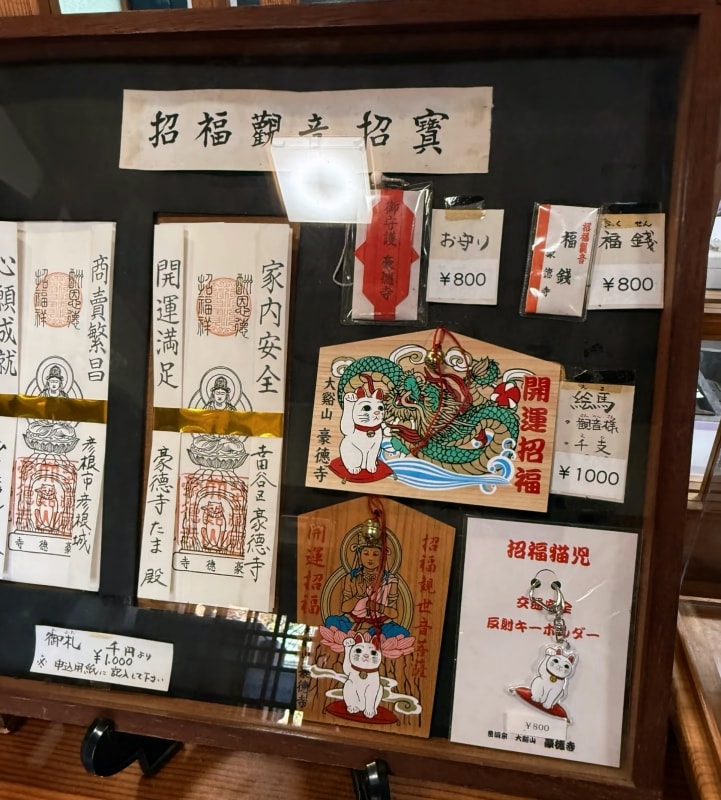 招福觀音招寳
心願成就
商賣繁昌
酬恩德
招福祥
彦根市彦根城
豪德寺
家内安全
開運満足
酬恩德
招福祥
世田谷区豪徳寺
豪徳寺たま殿
豪德寺
御札 千円より
¥1,000
※申込用紙に記入して下さい
御守護 豪徳寺
お守り
¥800
招福觀音
福銭
豪徳寺
ふくせん
福銭
¥800
開運招福
大谿山 豪徳寺
えま
絵馬
・観音様
・干支
¥1000
招福観世音菩薩
開運招福
豪徳寺
招福猫児
交通安全
反射キーホルダー
¥800
大谿山 豪徳寺